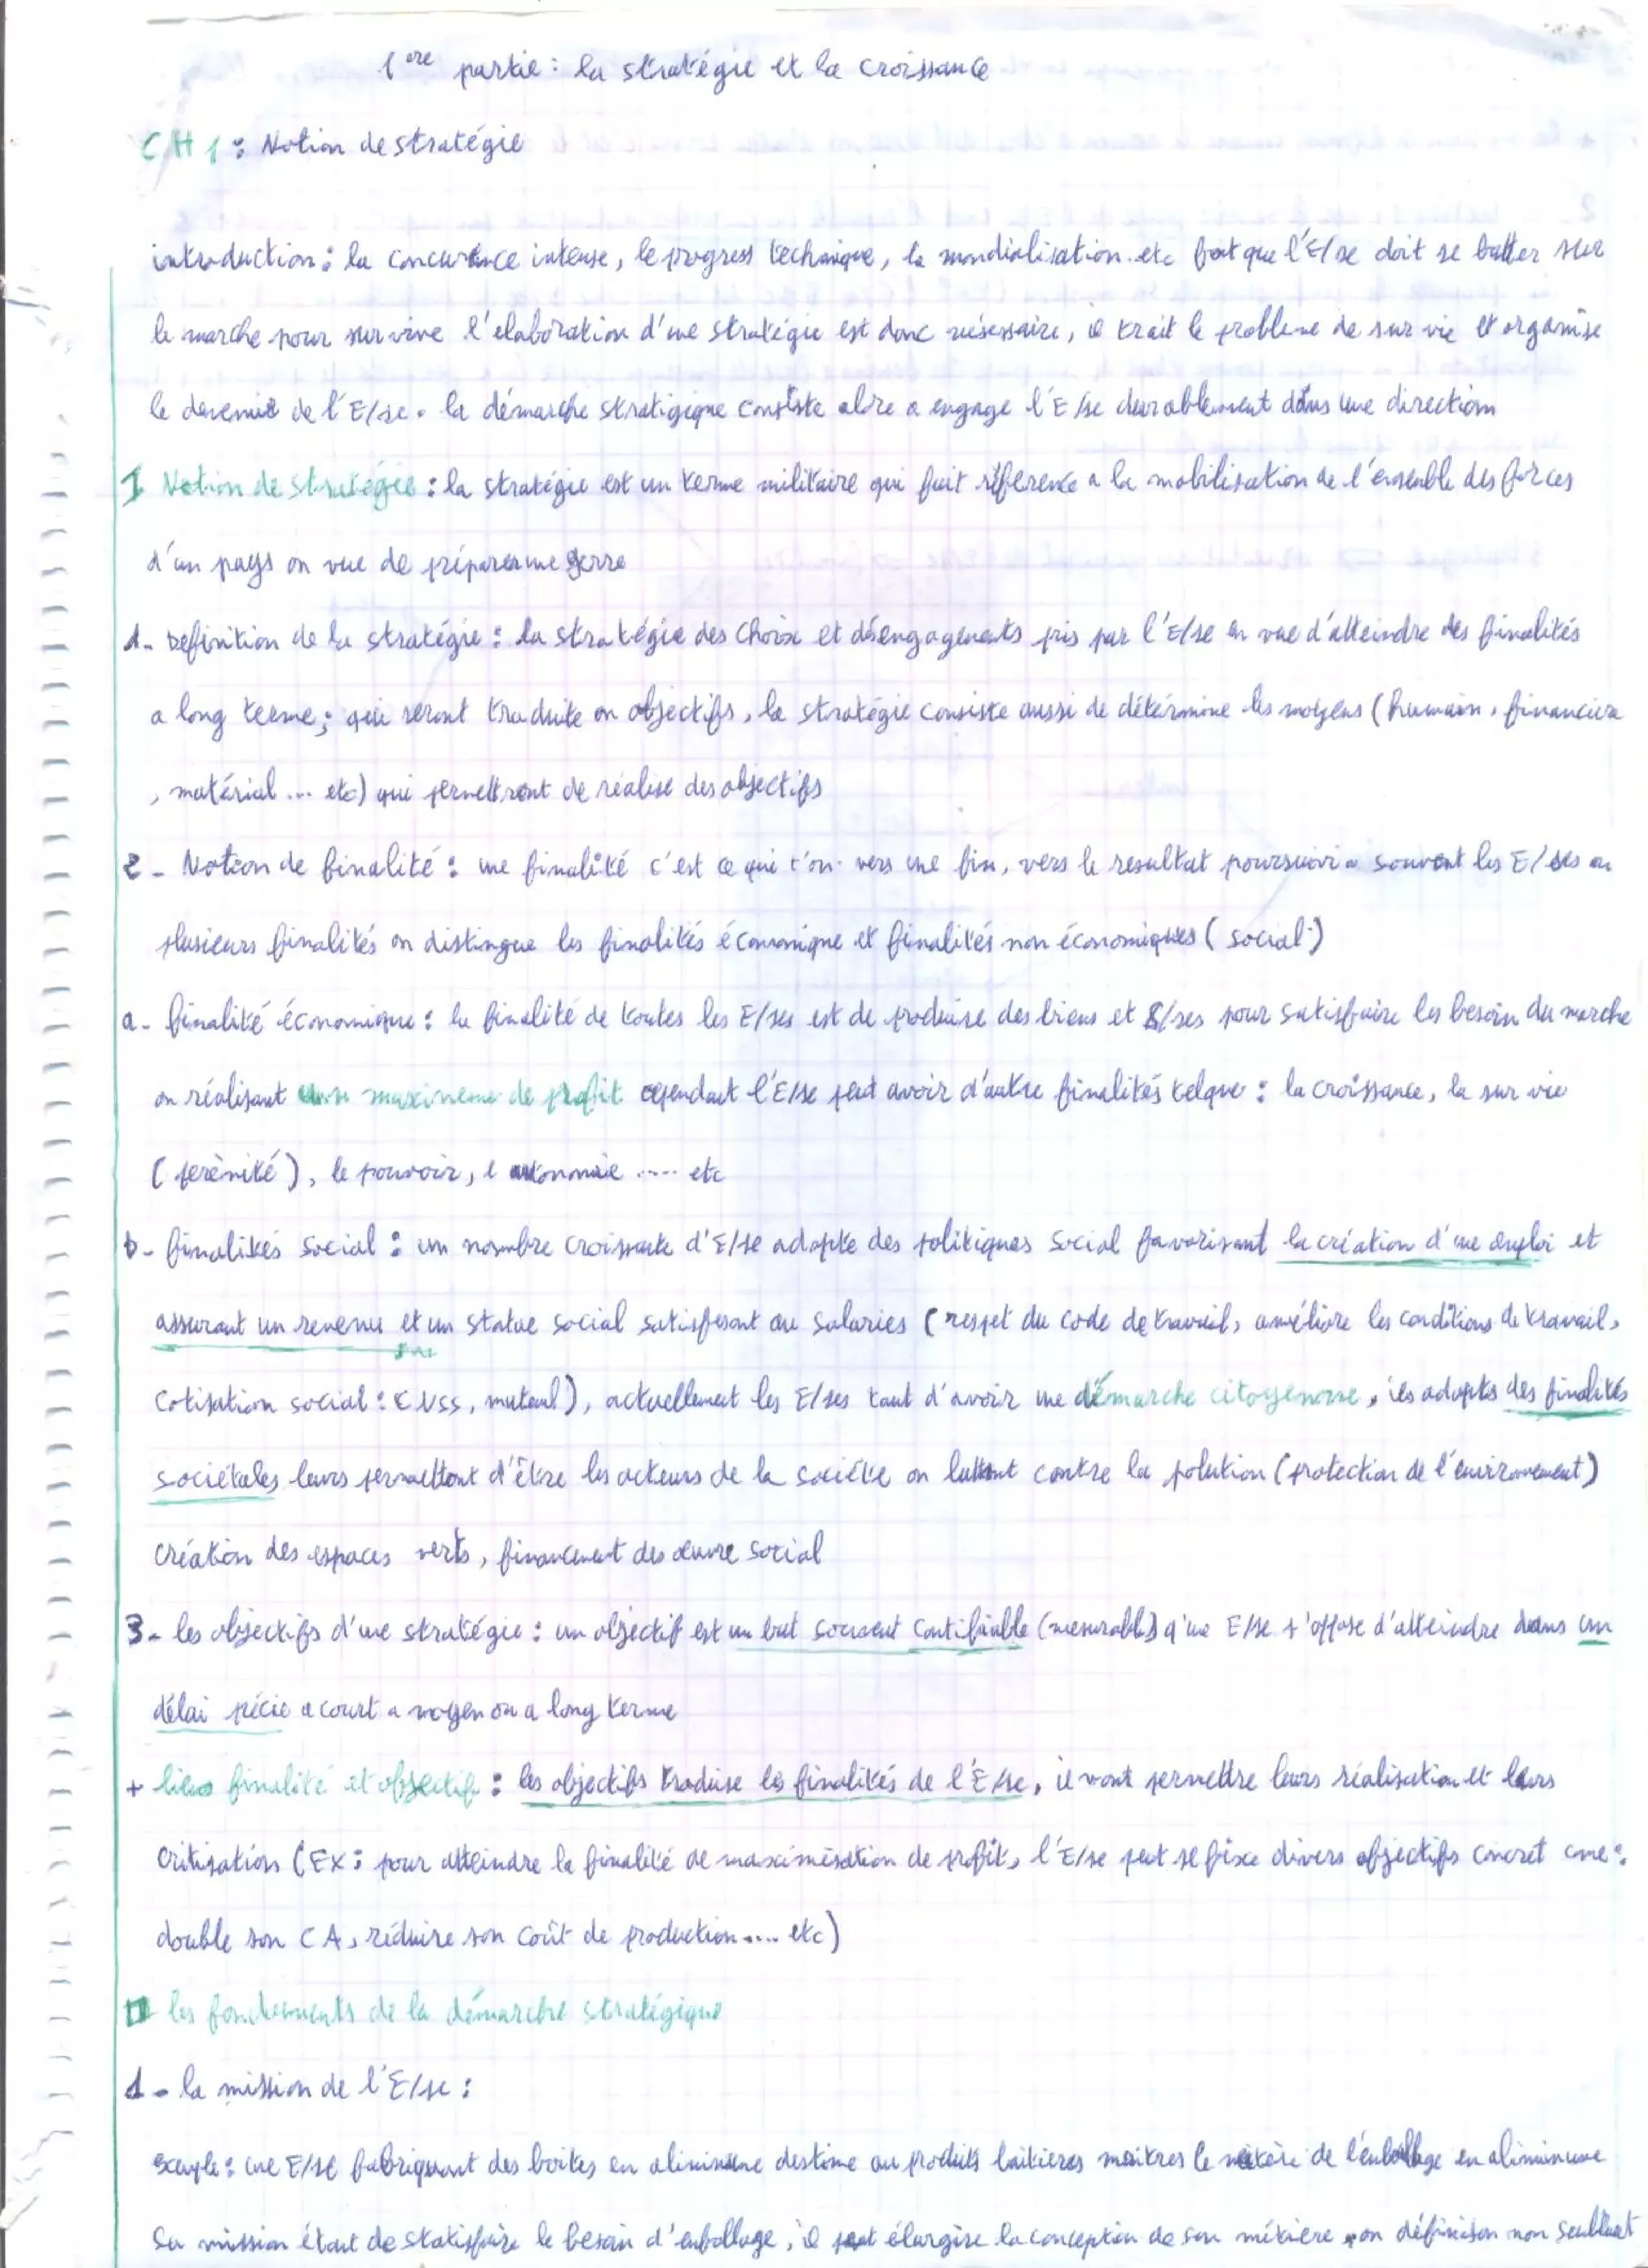 1ere partie : la stratégie et la croissance
CH 1 : Notion de stratégie
introduction : la concurence intense, le progress technique, la mondialisation etc font que l'E/se doit se batter sur
le marche pour survivre l'elaboration d'une stratégie est donc nésessaire, il trait le probleme de sur vie et organise
le devenir de l'E/se. la démarche stratigique consiste alore a engage l'E/se durablement dans une direction
I Notion de stratégie : la stratégie est un terme militaire qui fait réference a la mobilisation de l'ensemble des forces
d'un pays on vue de préparer une gerre
1- Definition de la stratégie : la stratégie des choix et désengagements pris par l'E/se en vue d'atteindre des finalités
a long terme ; qui seront traduite on objectifs, la stratégie consiste aussi de détérmine les moyens (humain, financiere
, matérial ... etc) qui permettront de réalise des objectifs
2 - Notion de finalité : une finalité c'est ce qui t'on vers une fin, vers le resultat poursuivi. souvent les E/ses on
plusieurs finalités on distingue les finalités économique et finalités non économiques (social)
a- finalité économique : la finalité de toutes les E/ses est de produise des biens et S/ses pour satisfaire les besoin du marche
on réalisant un maximeme de profit cependant l'E/se peut avoir d'autre finalités telque : la croissance, la sur vie
(pérènité), le pouvoir, l autonomie .... etc
b- finalités social : un nombre croissante d'E/se adopte des politiques social favorisant la création d'une emploi et
assurant un revenu et un statue social satisfesant au salaries (respet du code de travail, améliore les conditions de travail,
cotisation social : CNSS, mutuel), actuellement les E/ses tant d'avoir une démarche citoyenne, ils adopts des finalités
sociétales leurs permettont d'être les acteurs de la sociéte on luttant contre la polution (protection de l'environement)
création des espaces verts, financement des œuvre social
3- les objectifs d'une stratégie : un objectif est un but souvent contifiable (mesurable) q'une E/se s'oppose d'atteindre dans un
délai précie a court a moyen ou a long terme
+ liens finalité et objectif : les objectifs traduise les finalités de l'E/se, il vont permettre leurs réalisation et leurs
critisations (EX : pour atteindre la finalité de maximisation de profit, l'E/se peut se fixe divers objectifs concret come :
double son CA, réduire son coût de production .... etc)
II les fondements de la démarche stratégique
1- la mission de l'E/se :
exemple : une E/se fabriquant des boites en aliminume destine au produits laitieres maitres le metière de l'emballage en aliminume
sa mission étant de statisfaire le besoin d'emballage, il peut élargire la conception de son métière on définison non seulment